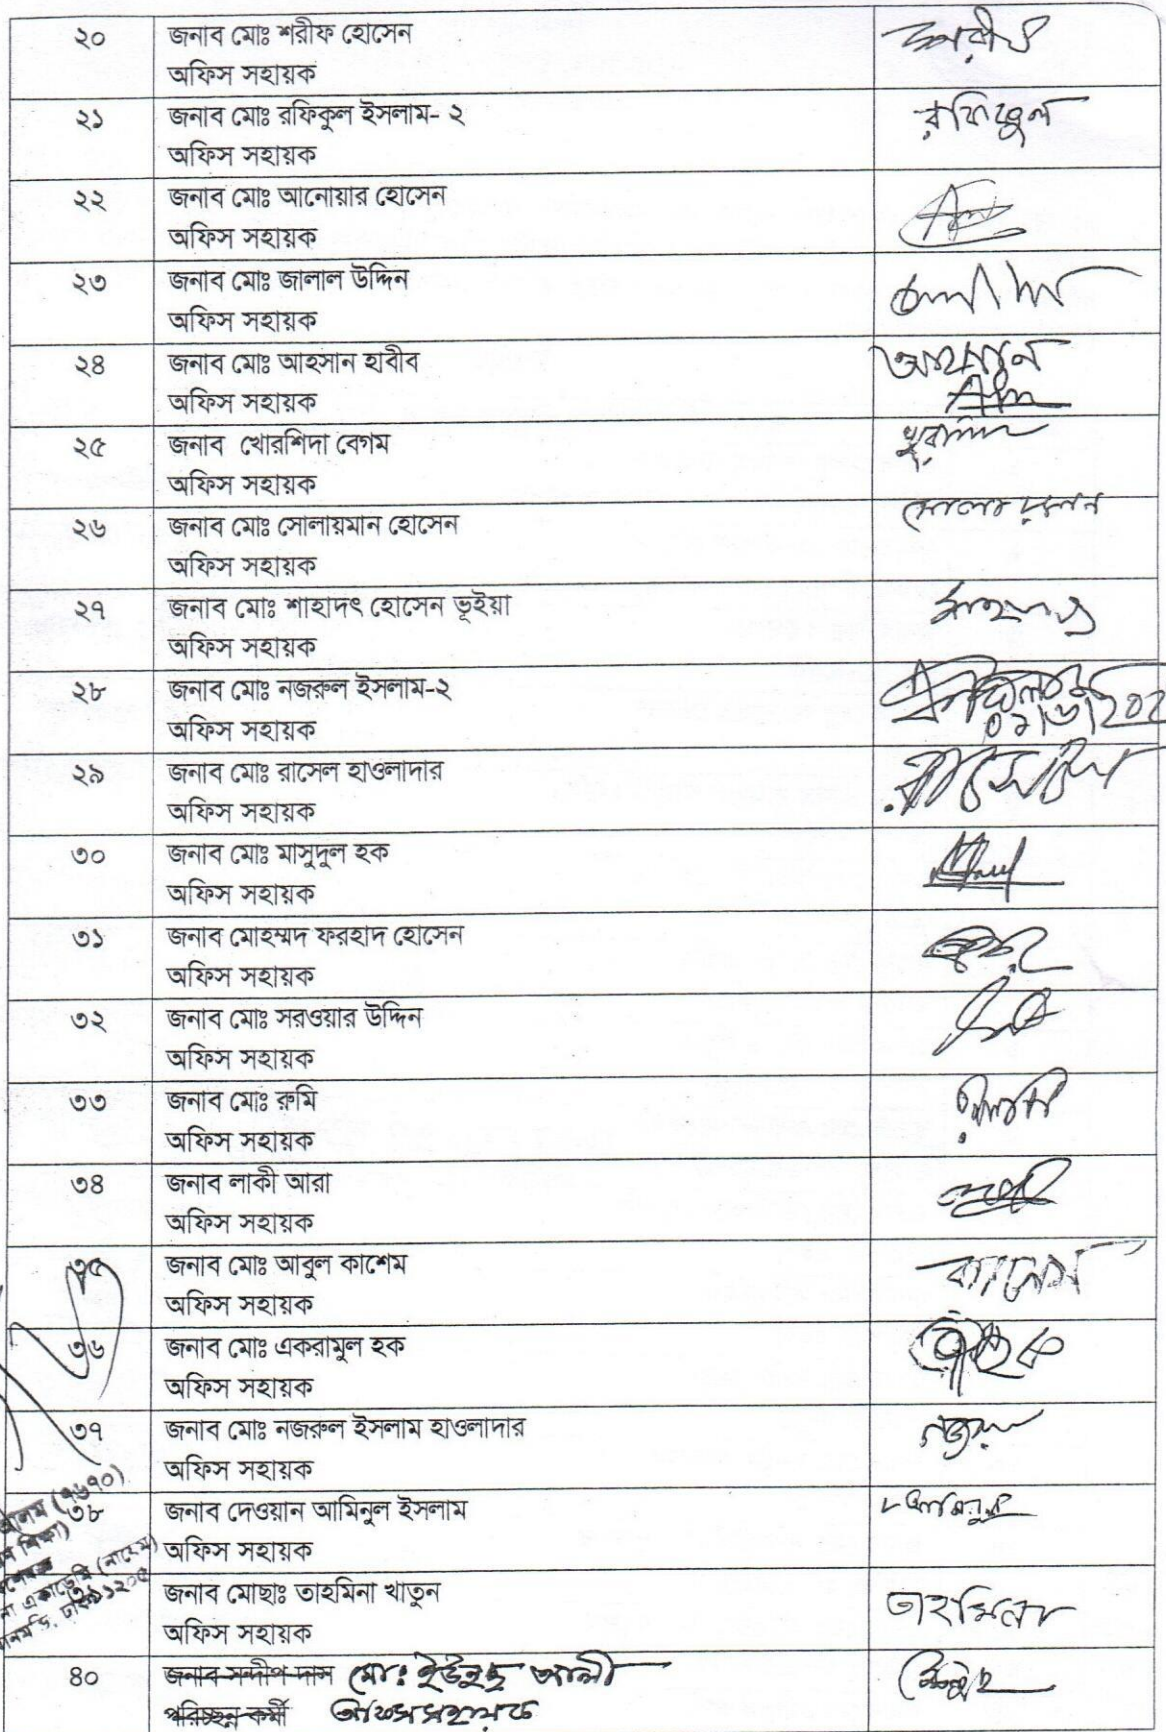 ২০ জনাব মোঃ শরীফ হোসেন শরীফ
অফিস সহায়ক
২১ জনাব মোঃ রফিকুল ইসলাম- ২ রফিকুল
অফিস সহায়ক
২২ জনাব মোঃ আনোয়ার হোসেন
অফিস সহায়ক
২৩ জনাব মোঃ জালাল উদ্দিন
অফিস সহায়ক
২৪ জনাব মোঃ আহসান হাবীব আহসান
অফিস সহায়ক
২৫ জনাব খোরশিদা বেগম
অফিস সহায়ক
২৬ জনাব মোঃ সোলায়মান হোসেন
অফিস সহায়ক
২৭ জনাব মোঃ শাহাদৎ হোসেন ভূইয়া
অফিস সহায়ক
২৮ জনাব মোঃ নজরুল ইসলাম-২
অফিস সহায়ক
২৯ জনাব মোঃ রাসেল হাওলাদার
অফিস সহায়ক
৩০ জনাব মোঃ মাসুদুল হক
অফিস সহায়ক
৩১ জনাব মোহম্মদ ফরহাদ হোসেন
অফিস সহায়ক
৩২ জনাব মোঃ সরওয়ার উদ্দিন
অফিস সহায়ক
৩৩ জনাব মোঃ রুমি
অফিস সহায়ক
৩৪ জনাব লাকী আরা
অফিস সহায়ক
৩৫ জনাব মোঃ আবুল কাশেম
অফিস সহায়ক
৩৬ জনাব মোঃ একরামুল হক
অফিস সহায়ক
৩৭ জনাব মোঃ নজরুল ইসলাম হাওলাদার
অফিস সহায়ক
(৭৬৭০)
৩৮ জনাব দেওয়ান আমিনুল ইসলাম
অফিস সহায়ক
একাডেমি (নায়েম)
৩৯ জনাব মোছাঃ তাহমিনা খাতুন তাহমিনা
অফিস সহায়ক
৪০ জনাব সন্দীপ দাস মোঃ ইউনুছ আলী
পরিচ্ছন্ন কর্মী অফিস সহায়ক